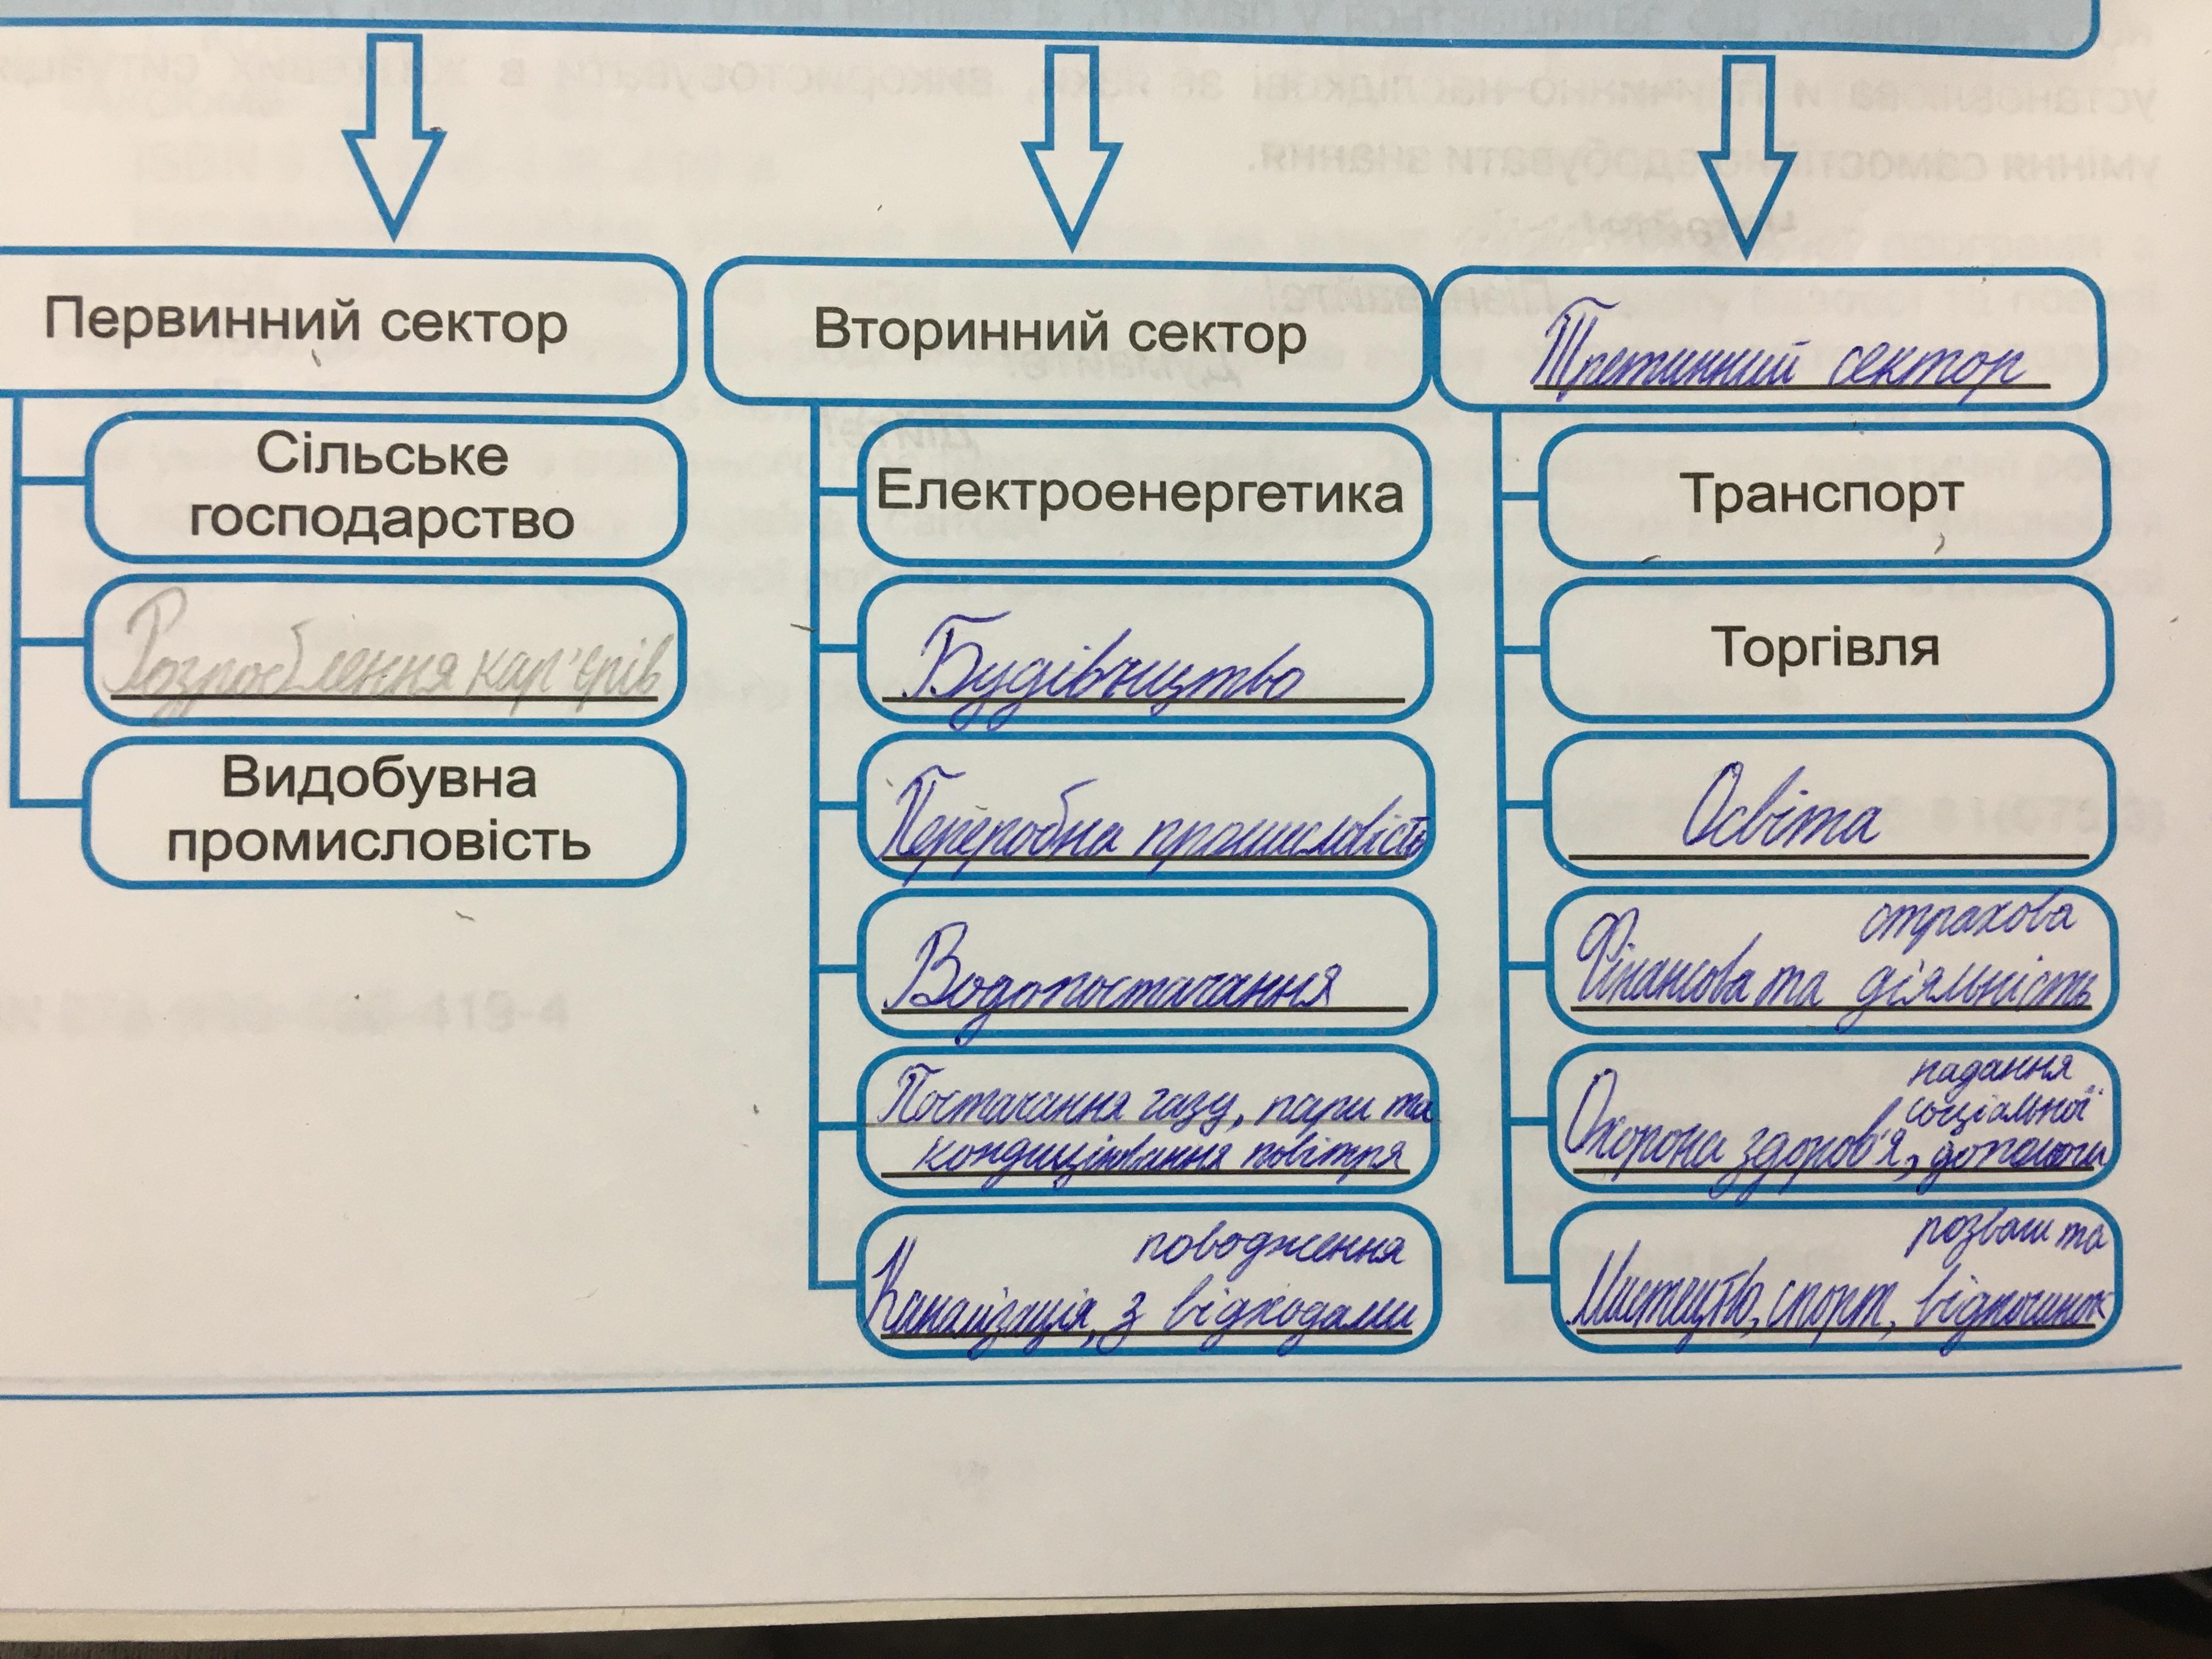 Первинний сектор
Сільське
господарство
Розроблення кар'єрів
Видобувна
промисловість
Вторинний сектор
Електроенергетика
Будівництво
Переробна промисловість
Водопостачання
Постачання газу, пари та
кондиціювання повітря
поводження
Каналізація, з відходами
Третинний сектор
Транспорт
Торгівля
Освіта
страхова
Фінансова та діяльність
надання
соціальної
Охорона здоров'я, допомоги
розваги та
Мистецтво, спорт, відпочинок